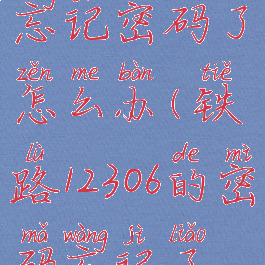 忘记密码了
zěn me bàn tiě
怎么办(铁
lù de mì
路12306的密
mǎ wàng jì liǎo
码忘记了